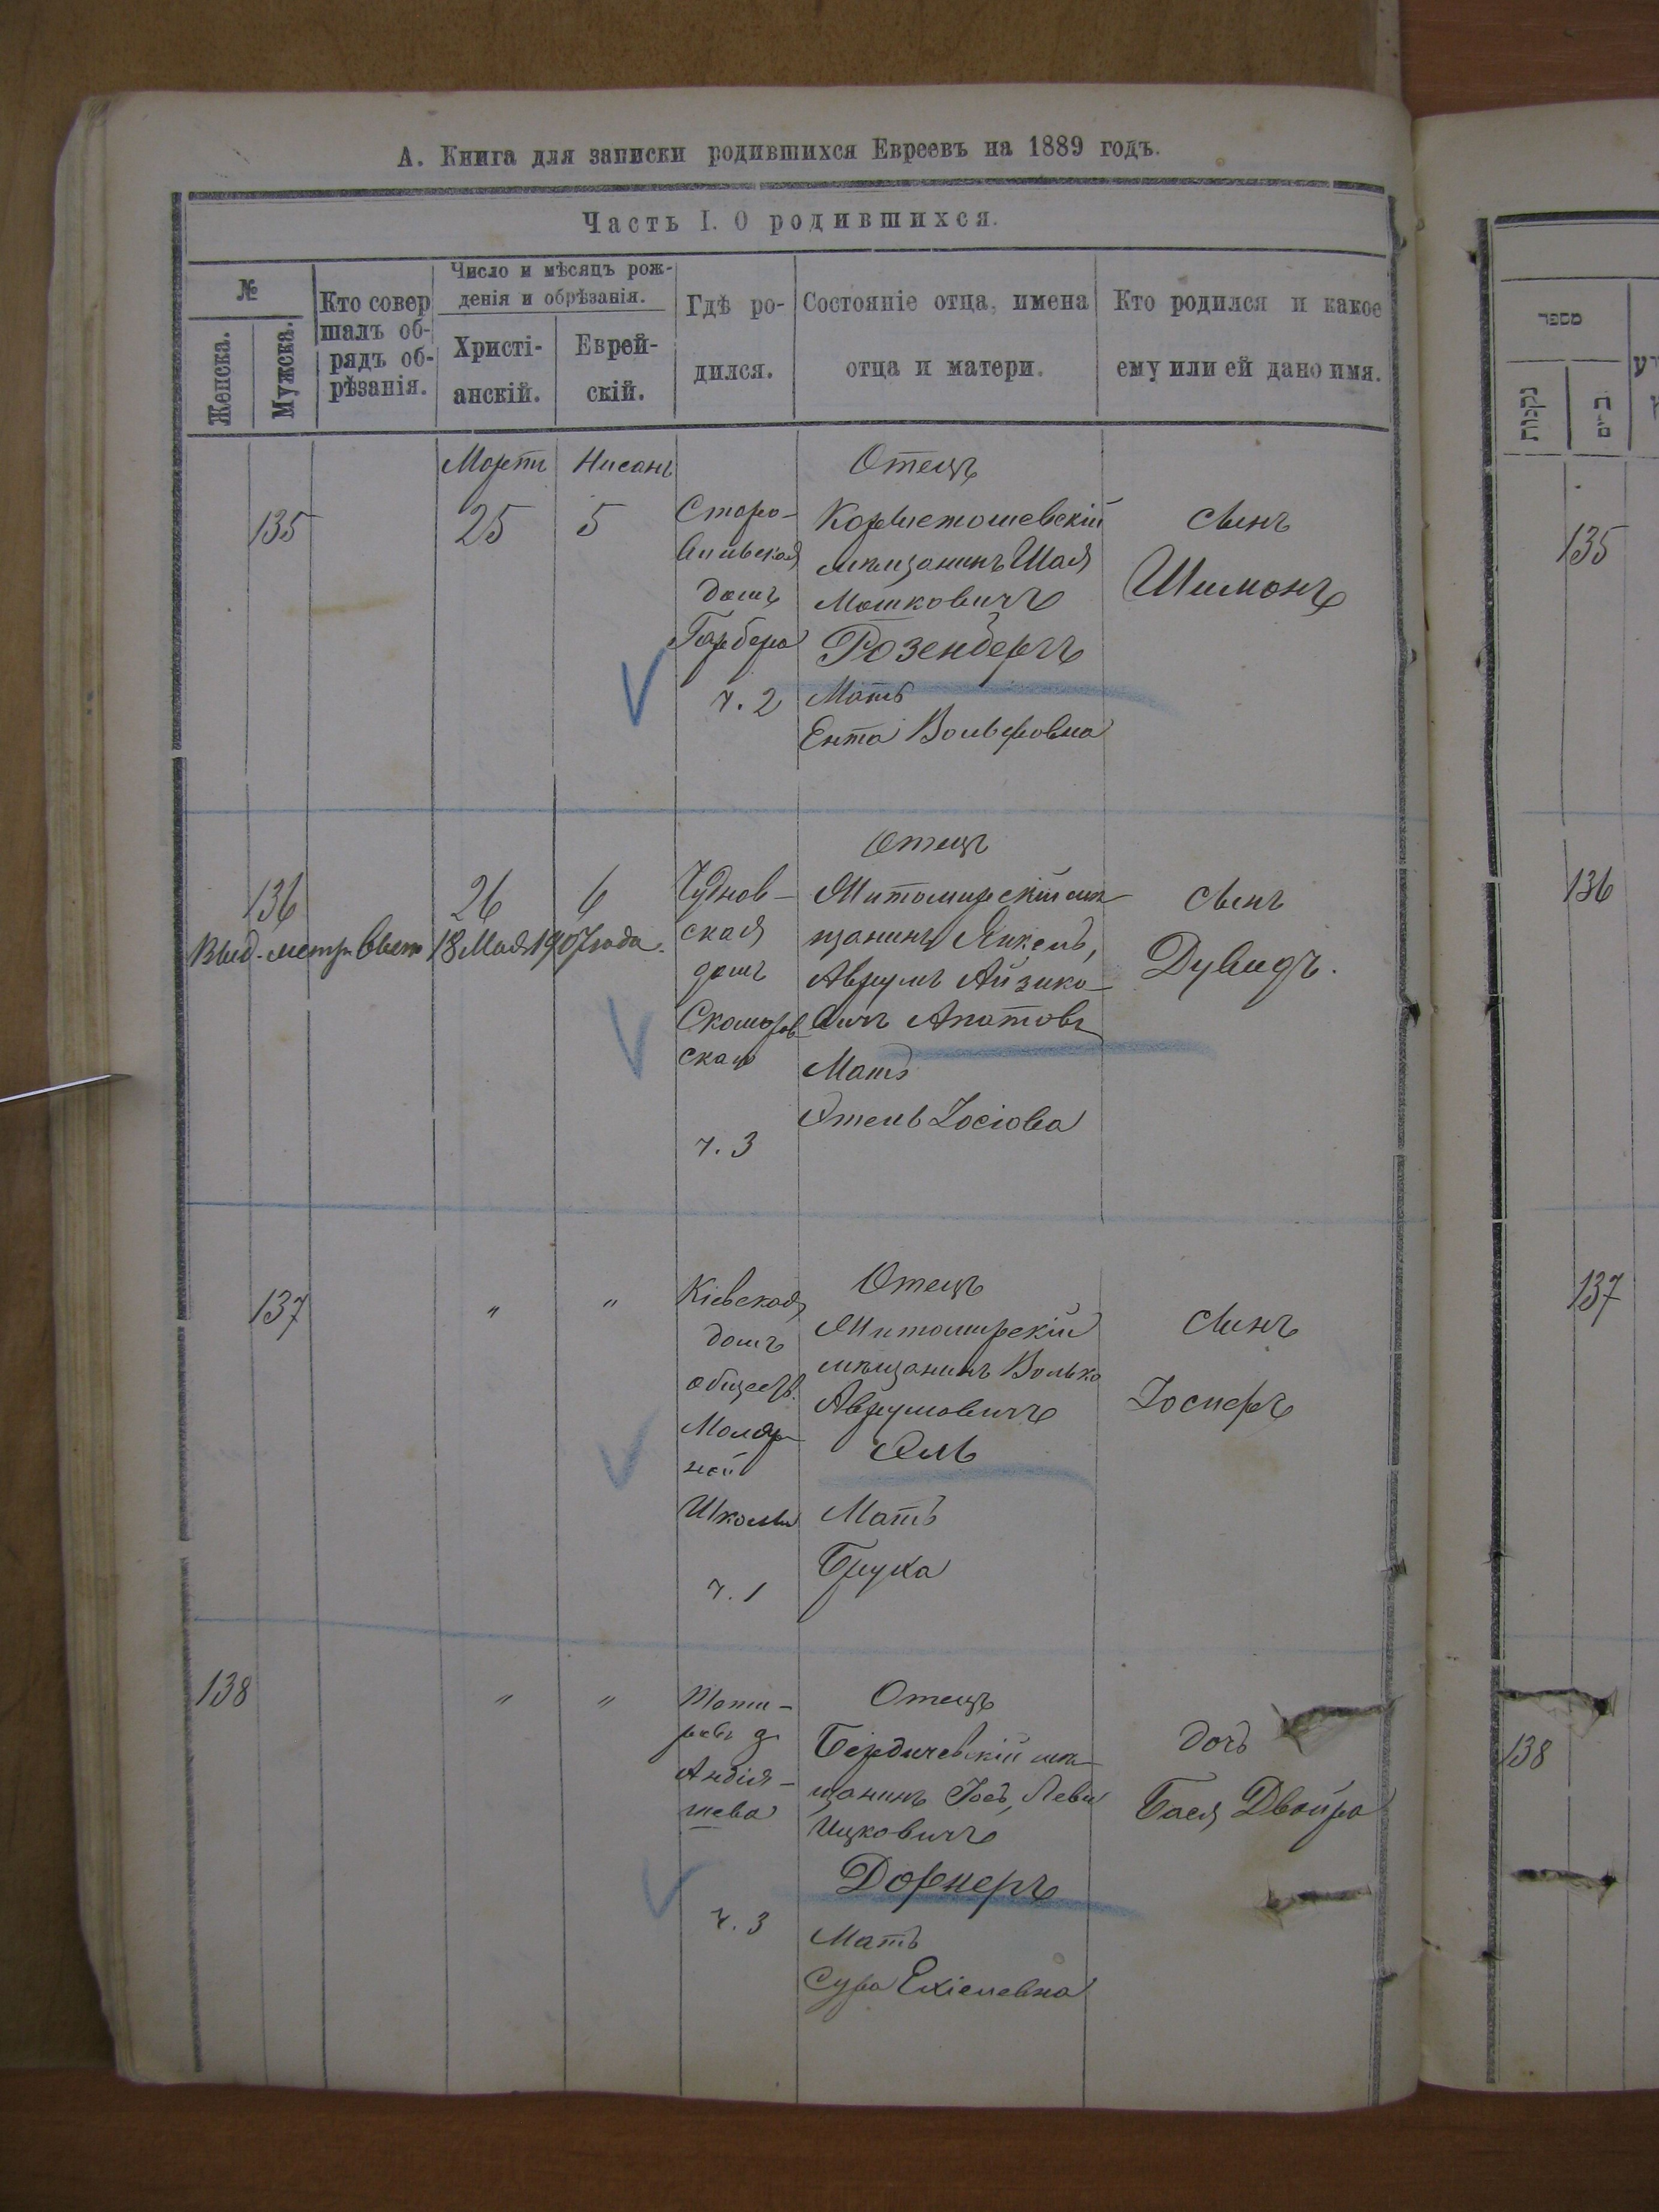 А. Книга для записки родившихся Евреевъ на 1889 годъ.
Часть I. О родившихся.
№
Женска.
Мужска.
Кто совер
шалъ об-
рядъ об-
рѣзанія.
Число и мѣсяцъ рож-
денія и обрѣзанія.
Христі-
анскій.
Еврей-
скій.
Гдѣ ро-
дился.
Состояніе отца, имена
отца и матери.
Кто родился и какое
ему или ей дано имя.
135
Мартъ
25
Нисанъ
5
Старо-
Вильская
домъ
Гарбера
ч. 2
Отецъ
Коростышевскій
мѣщанинъ Шая
Мошковичъ
Розенбергъ
Мать
Ента Вольфовна
сынъ
Шимонъ
136
26
6
Выд. метр. 18 Мая 1907 года.
Чуднов-
ская
домъ
ч. 3
Отецъ
Житомирскій мѣ-
щанинъ Янкель,
Аврумъ Айзико-
вичъ Апатовъ
Мать
Этель Іосіова
сынъ
Дувидъ.
137
"
"
Кіевская
домъ
обществ.
Маляр-
ной
Школы
ч. 1
Отецъ
Житомирскій
мѣщанинъ Волько
Аврумовичъ
Мать
Бруха
сынъ
Іосифъ
138
"
"
ч. 3
Отецъ
Бердичевскій мѣ-
щанинъ Іось, Леви
Ицковичъ
Дорнеръ
Мать
Сура Ехіелевна
дочь
Бася Двойра
מספר
נקבות
135
136
137
138